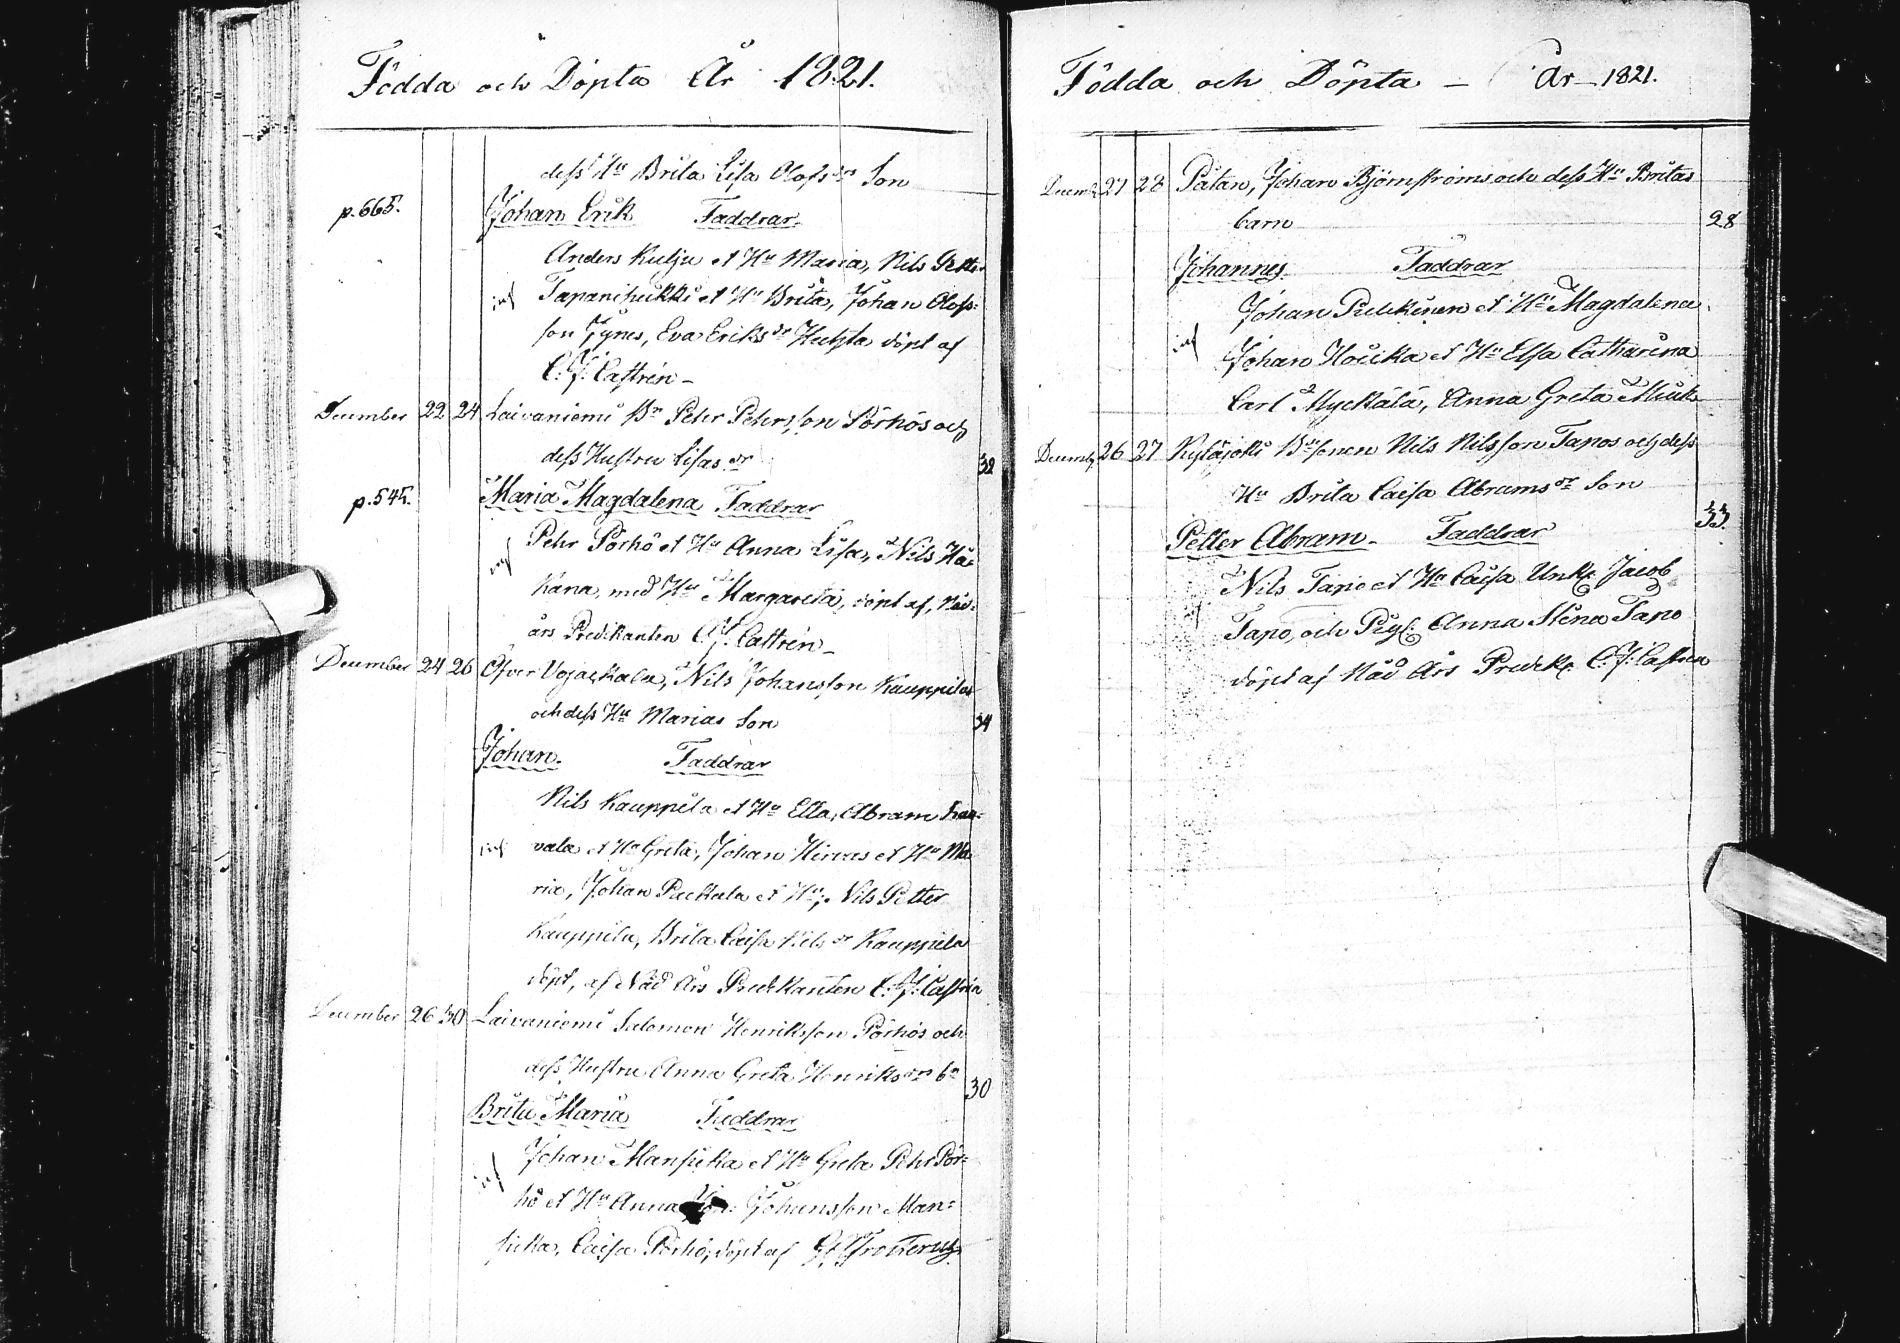 Födda och Döpta År 1821.
dess Hu Brita Lisa Olofsdrs Son
p. 665. Johan Erik Faddrar
Anders Kulju et Hu Maria, Nils Petter
inf Tapaniheikki et Hu Brita, Johan Olofs-
son, Eva Eriksdr döpt af
C: J: Castrén –
December 22 24 Laivaniemi Bn Pehr Pehrsson Pörhös och
dess Hustru Lisas dr 32
p. 545. Maria Magdalena Faddrar
inf Pehr Pörhö et Hu Anna Lisa, Nils Hä-
kana, med Hu Margareta, döpt af, Nåd-
års Predikanten C J: Castrén –
December 24 26 Öfver Vojackala, Nils Johansson Kauppilas
och dess Hu Marias Son 34
Johan. Faddrar
Nils Kauppila et Hu Ella, Abram
inf vala et Hu Greta, Johan Hirvas et Hu Ma
ria, Johan Packala et Hu; Nils Petter
Kauppila, Brita Caisa Nils dr Kauppila
döpt, af Nåd Års Predikanten C: J: Castrén
December 26 30 Laivaniemi Salomon Henriksson Pörhös och
dess Hustru Anna Greta Henriksdrs bn 30
Brita Maria Faddrar
inf Johan Mansikka et Hu Greta Pehr Pör-
hö et Hu Anna Johansson Man-
sicka, Caisa Pörhö, döpt af
Födda och Döpta – År – 1821.
Decemb 27 28 Pätan, Johan Björnströms och dess Hu Britas
barn 28
Johannes Faddrar
Johan Pelckinen et Hu Magdalena
inf Johan Houcka et Hu Elsa Catharina
Carl Myckälä, Anna Greta
Decemb 26 27 Kyläjoki Bdesonen Nils Nilsson Tapos och dess
Hu Brita Caisa Abrams dr Son 33.
Petter Abram. Faddrar
Nils Tapio et Hu Caisa Unk. Jacob
Tapo, och Pig. Anna Stena Tapo
döpt af Nåd Års Predik. C: J: Castrén